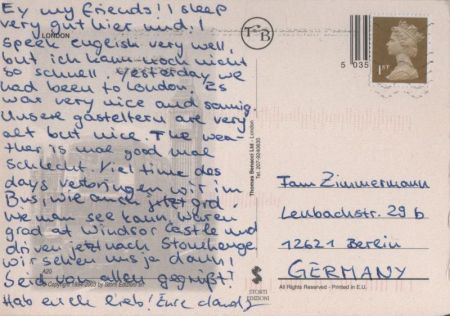 Ey my friends! I sleep
very gut hier und. I
speek english very well,
but ich kann noch nicht
so schnell. Yesterday we
had been to London. Es
war very nice and sonnig.
Unsere gasteltern are very
alt but nice. The wea-
ther is mal good mal
schlecht. Viel time des
days verbringen wir im
Bus, wie auch jetzt grad.
We
grad at Windsor Castle und
driven jetzt nach Stonehenge.
wir sehen uns ja dann!
Seid von allen gegrüßt!
Hab euch lieb! Eure
LONDON
TB
5 035
1ST
Thomas Benacci Ltd - London
Tel. 207-9240635
Fam Zimmermann
Lenbachstr. 29 b
12621 Berlin
GERMANY
A20
© Copyright 1996-2003 by Storti Edizioni Srl
S
STORTI
EDIZIONI
All Rights Reserved - Printed in E.U.